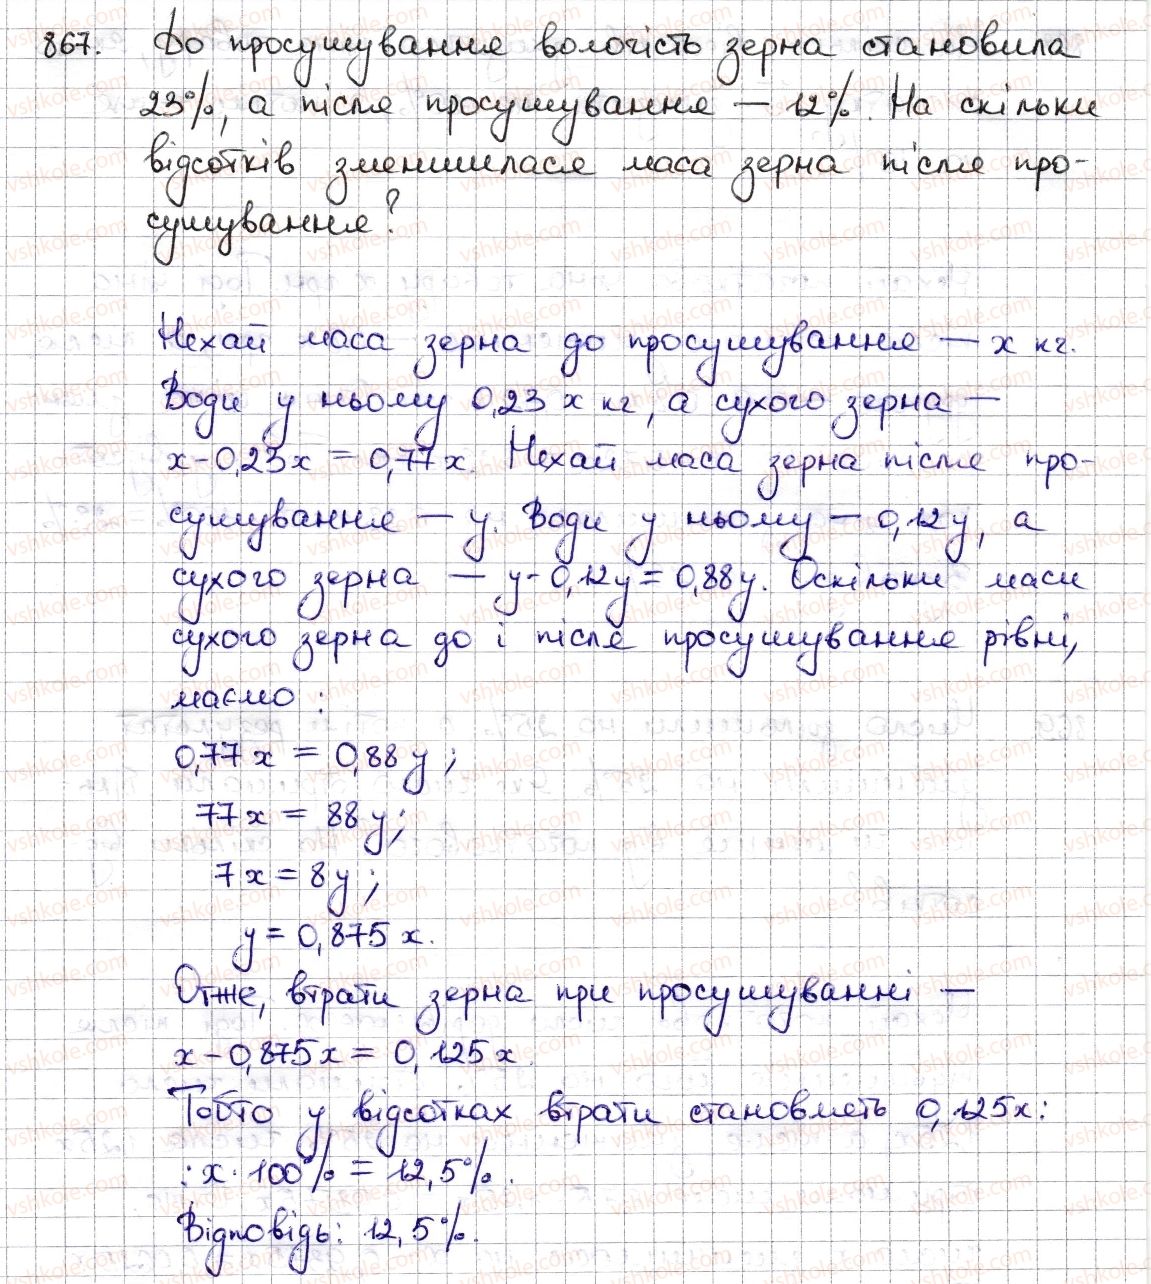 867. До просушування вологість зерна становила
23%, а після просушування — 12%. На скільки
відсотків зменшилася маса зерна після про-
сушування?
Нехай маса зерна до просушування — x кг.
Води у ньому 0,23 x кг, а сухого зерна —
x - 0,23x = 0,77x. Нехай маса зерна після про-
сушування — y. Води у ньому — 0,12y, а
сухого зерна — y - 0,12y = 0,88y. Оскільки маси
сухого зерна до і після просушування рівні,
маємо :
0,77x = 0,88y ;
77x = 88y;
7x = 8y ;
y = 0,875 x.
Отже, втрати зерна при просушуванні —
x - 0,875x = 0,125x.
Тобто у відсотках втрати становлять 0,125x :
: x · 100% = 12,5%.
Відповідь: 12,5%.